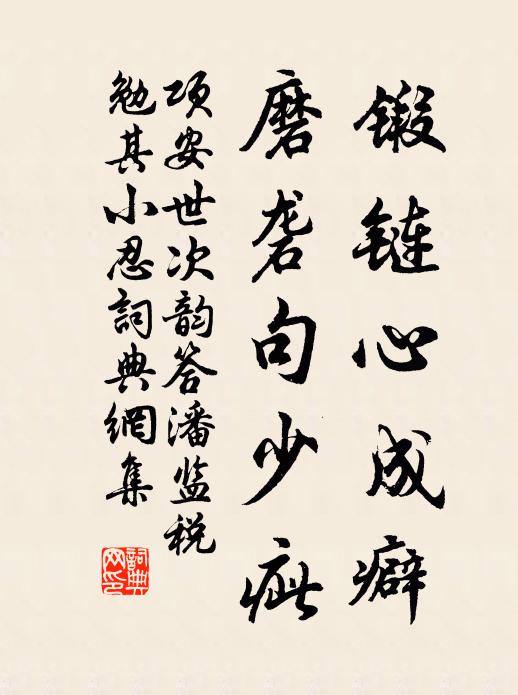 锻链心成癖
磨砻句少疵
项安世次韵答潘监税
勉其小忍詞典網集
詞典
网印